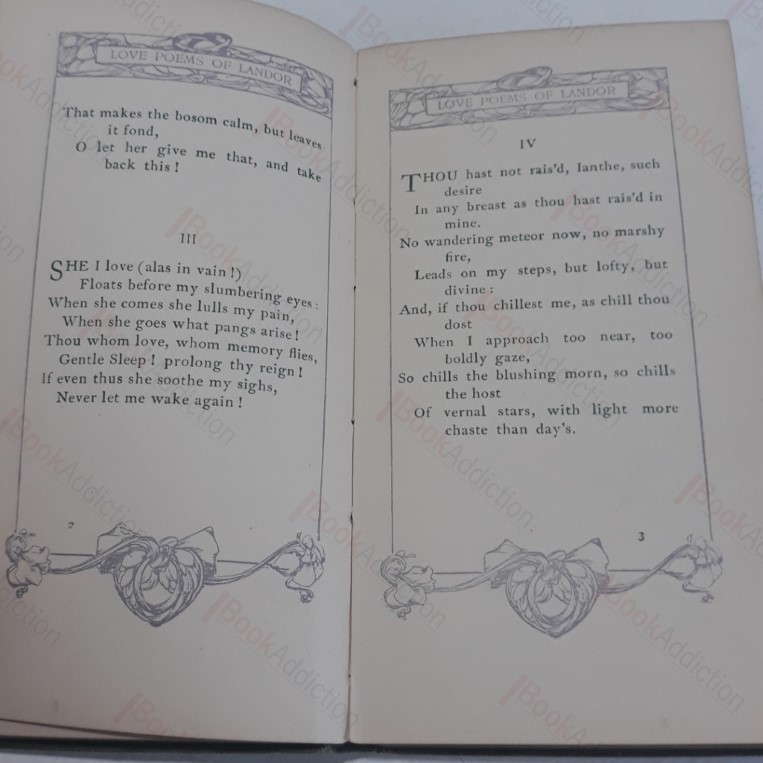 LOVE POEMS OF LANDOR
That makes the bosom calm, but leaves
it fond,
O let her give me that, and take
back this!
III
SHE I love (alas in vain!)
Floats before my slumbering eyes:
When she comes she lulls my pain,
When she goes what pangs arise!
Thou whom love, whom memory flies,
Gentle Sleep! prolong thy reign!
If even thus she soothe my sighs,
Never let me wake again!
2
LOVE POEMS OF LANDOR
IV
THOU hast not rais'd, Ianthe, such
desire
In any breast as thou hast rais'd in
mine.
No wandering meteor now, no marshy
fire,
Leads on my steps, but lofty, but
divine:
And, if thou chillest me, as chill thou
dost
When I approach too near, too
boldly gaze,
So chills the blushing morn, so chills
the host
Of vernal stars, with light more
chaste than day's.
3
BookAddiction